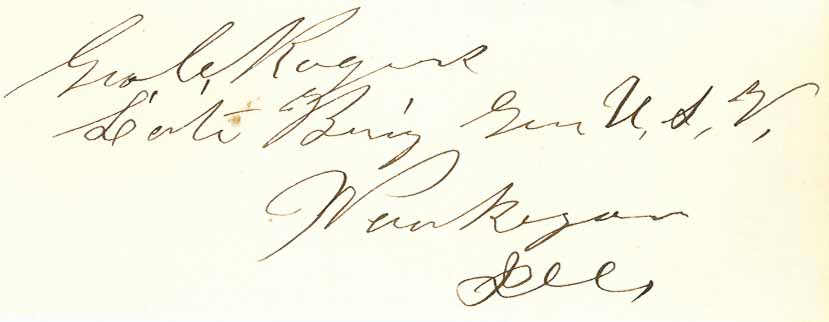 Geo C, Rogers
Late Brig Gen U, S, V,
Waukegan
Ill,